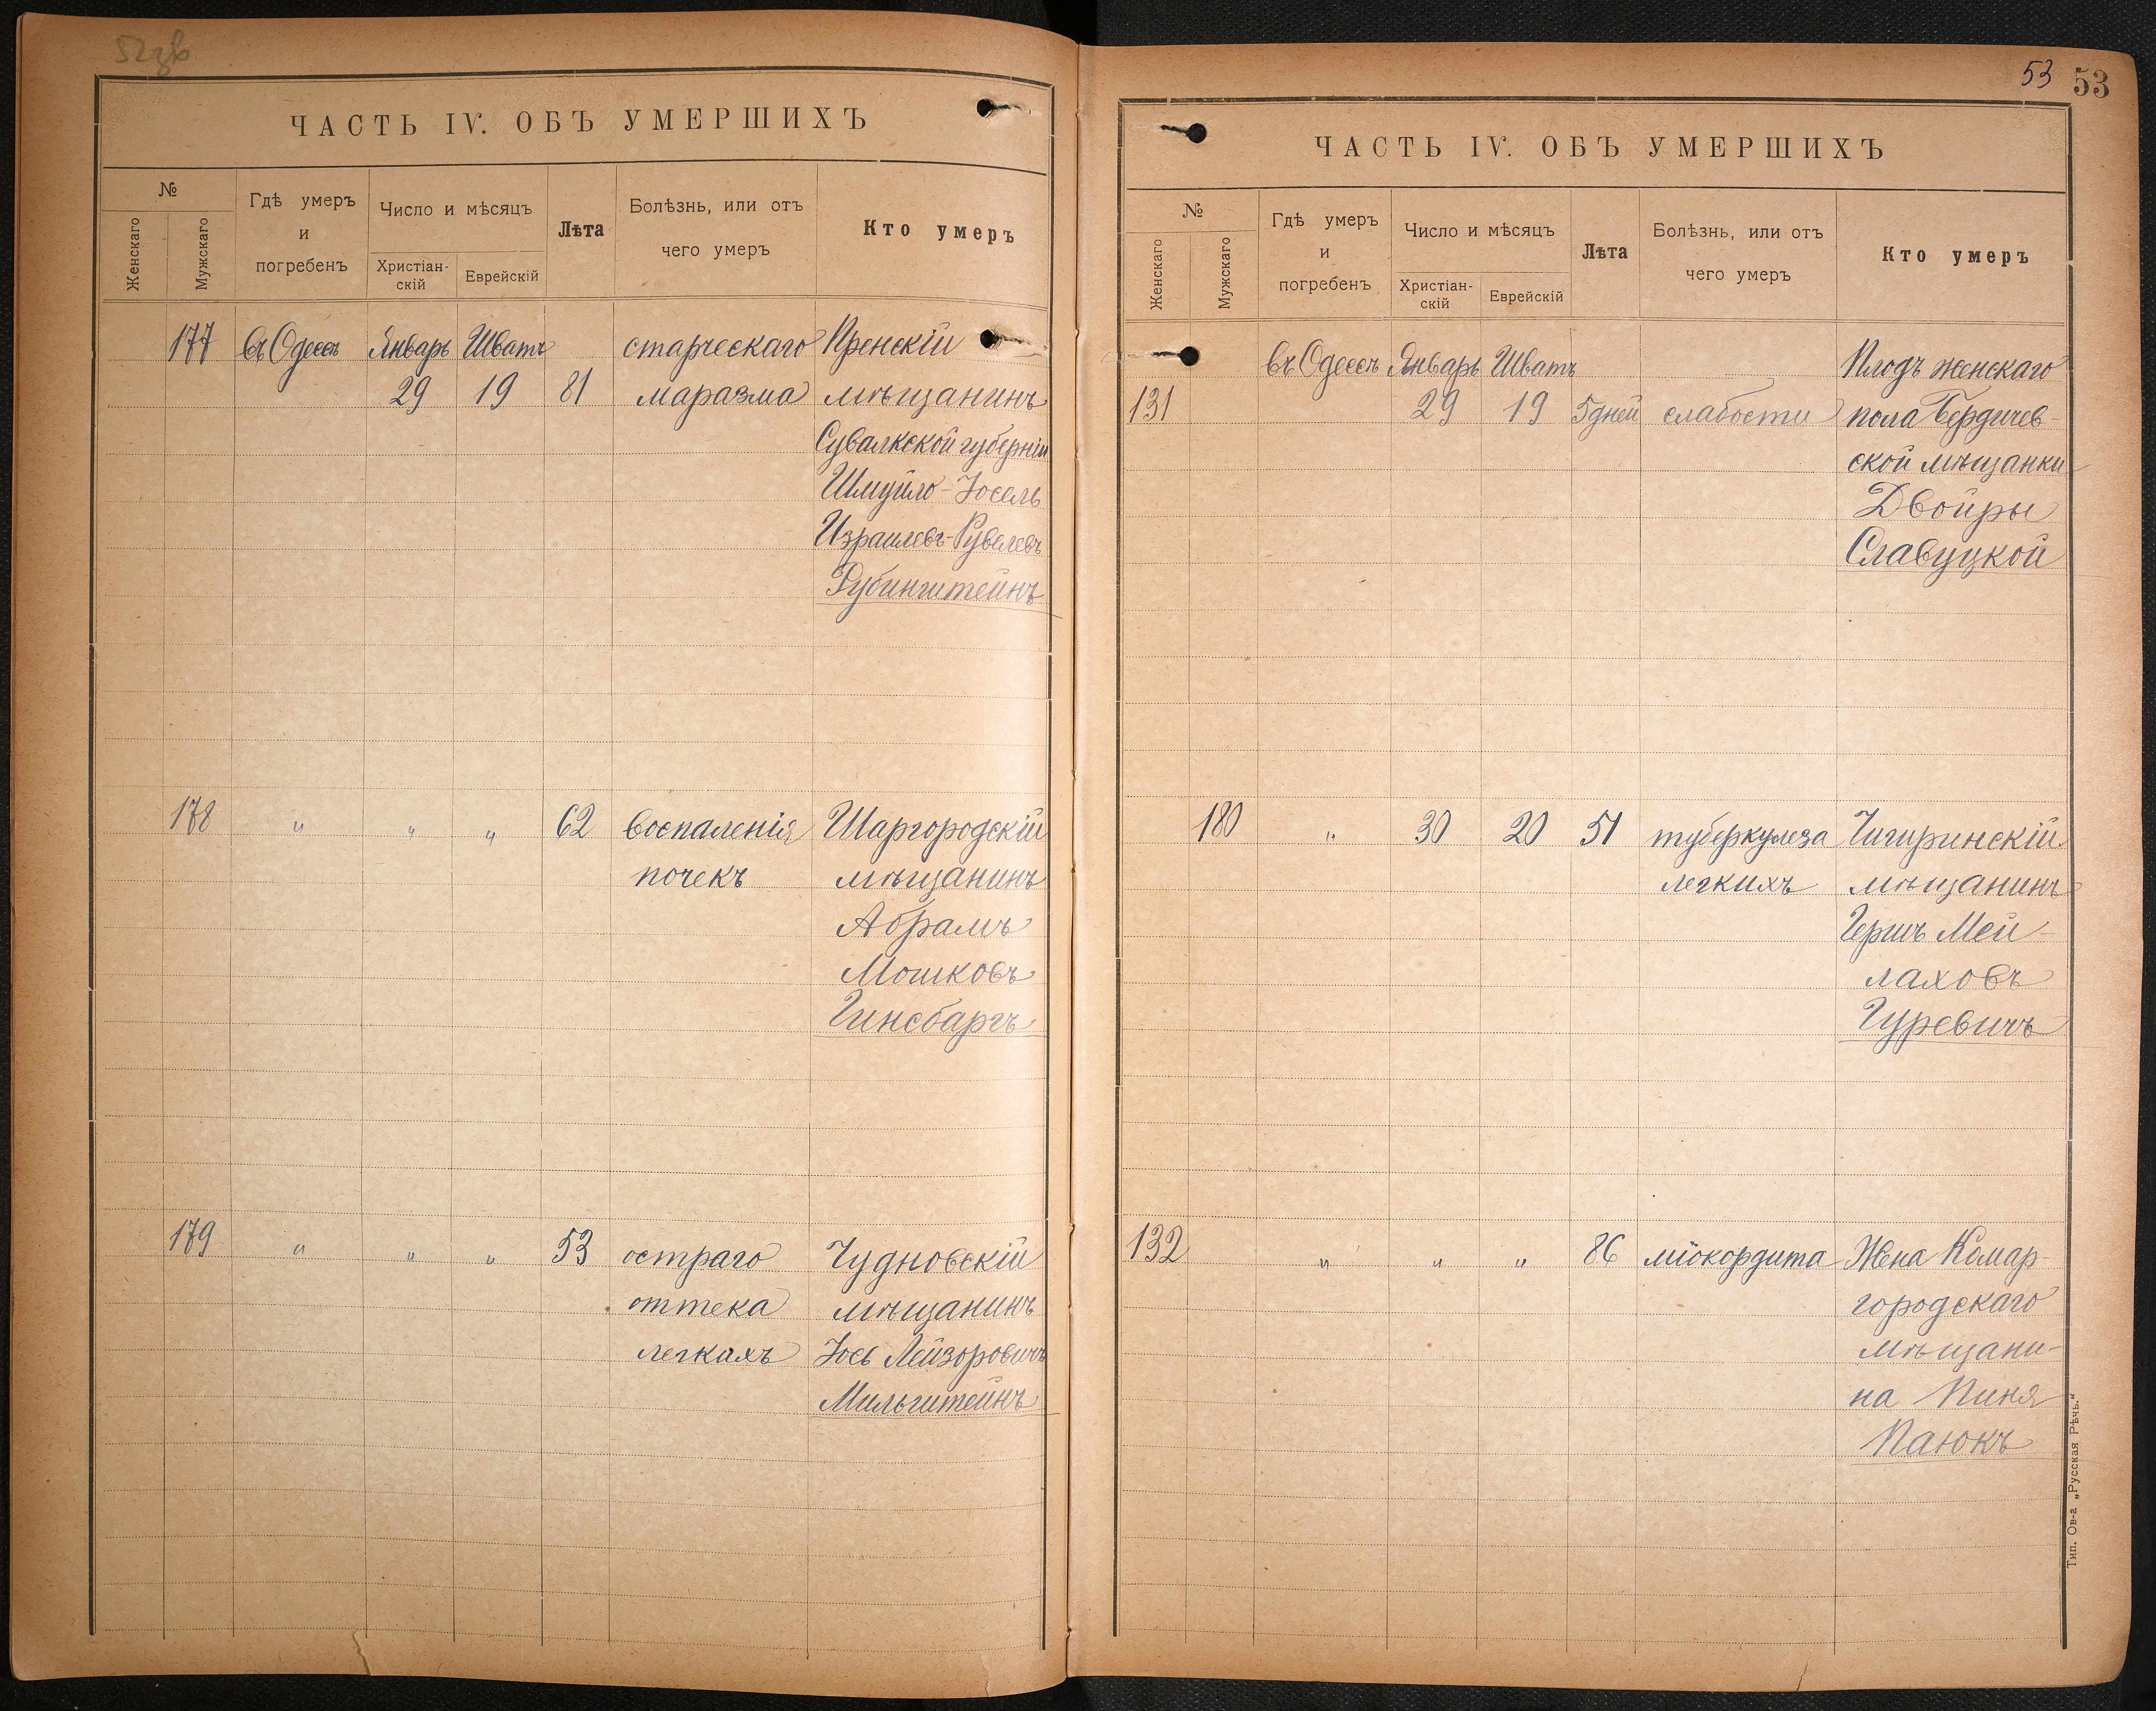 ЧАСТЬ IV. ОБЪ УМЕРШИХЪ
№
Женскаго
Мужскаго
Гдѣ умеръ
и
погребенъ
Число и мѣсяцъ
Христіан-
скій
Еврейскій
Лѣта
Болѣзнь, или отъ
чего умеръ
Кто умеръ
177 въ Одессѣ Январь Шватъ старческаго Пренскій
29 19 81 маразма мѣщанинъ
Сувалкской губерніи
Шмуйло-Іосель
Израилевъ-Рувелевъ
Рубинштейнъ
178 " " " 62 воспаленія Шаргородскій
почекъ мѣщанинъ
Абрамъ
Мошковъ
Гинсбаргъ
179 " " " 53 остраго Чудновскій
оттека мѣщанинъ
легкахъ Іось Лейзоровичъ
Мильштейнъ
53 53
ЧАСТЬ IV. ОБЪ УМЕРШИХЪ
№
Женскаго
Мужскаго
Гдѣ умеръ
и
погребенъ
Число и мѣсяцъ
Христіан-
скій
Еврейскій
Лѣта
Болѣзнь, или отъ
чего умеръ
Кто умеръ
въ Одессѣ Январь Шватъ Плодъ женскаго
131 29 19 5 дней слабости пола Бердичев-
ской мѣщанки
Двойры
Славуцкой
180 " 30 20 51 туберкулеза Чигиринскій
легкихъ мѣщанинъ
Гершъ Мей-
лаховъ
Гуревичъ
132 " " " 86 міокордита Жена Комар-
городскаго
мѣщани-
на Пиня
Паюкъ
Тип. Ов-а „Русская Рѣчь."